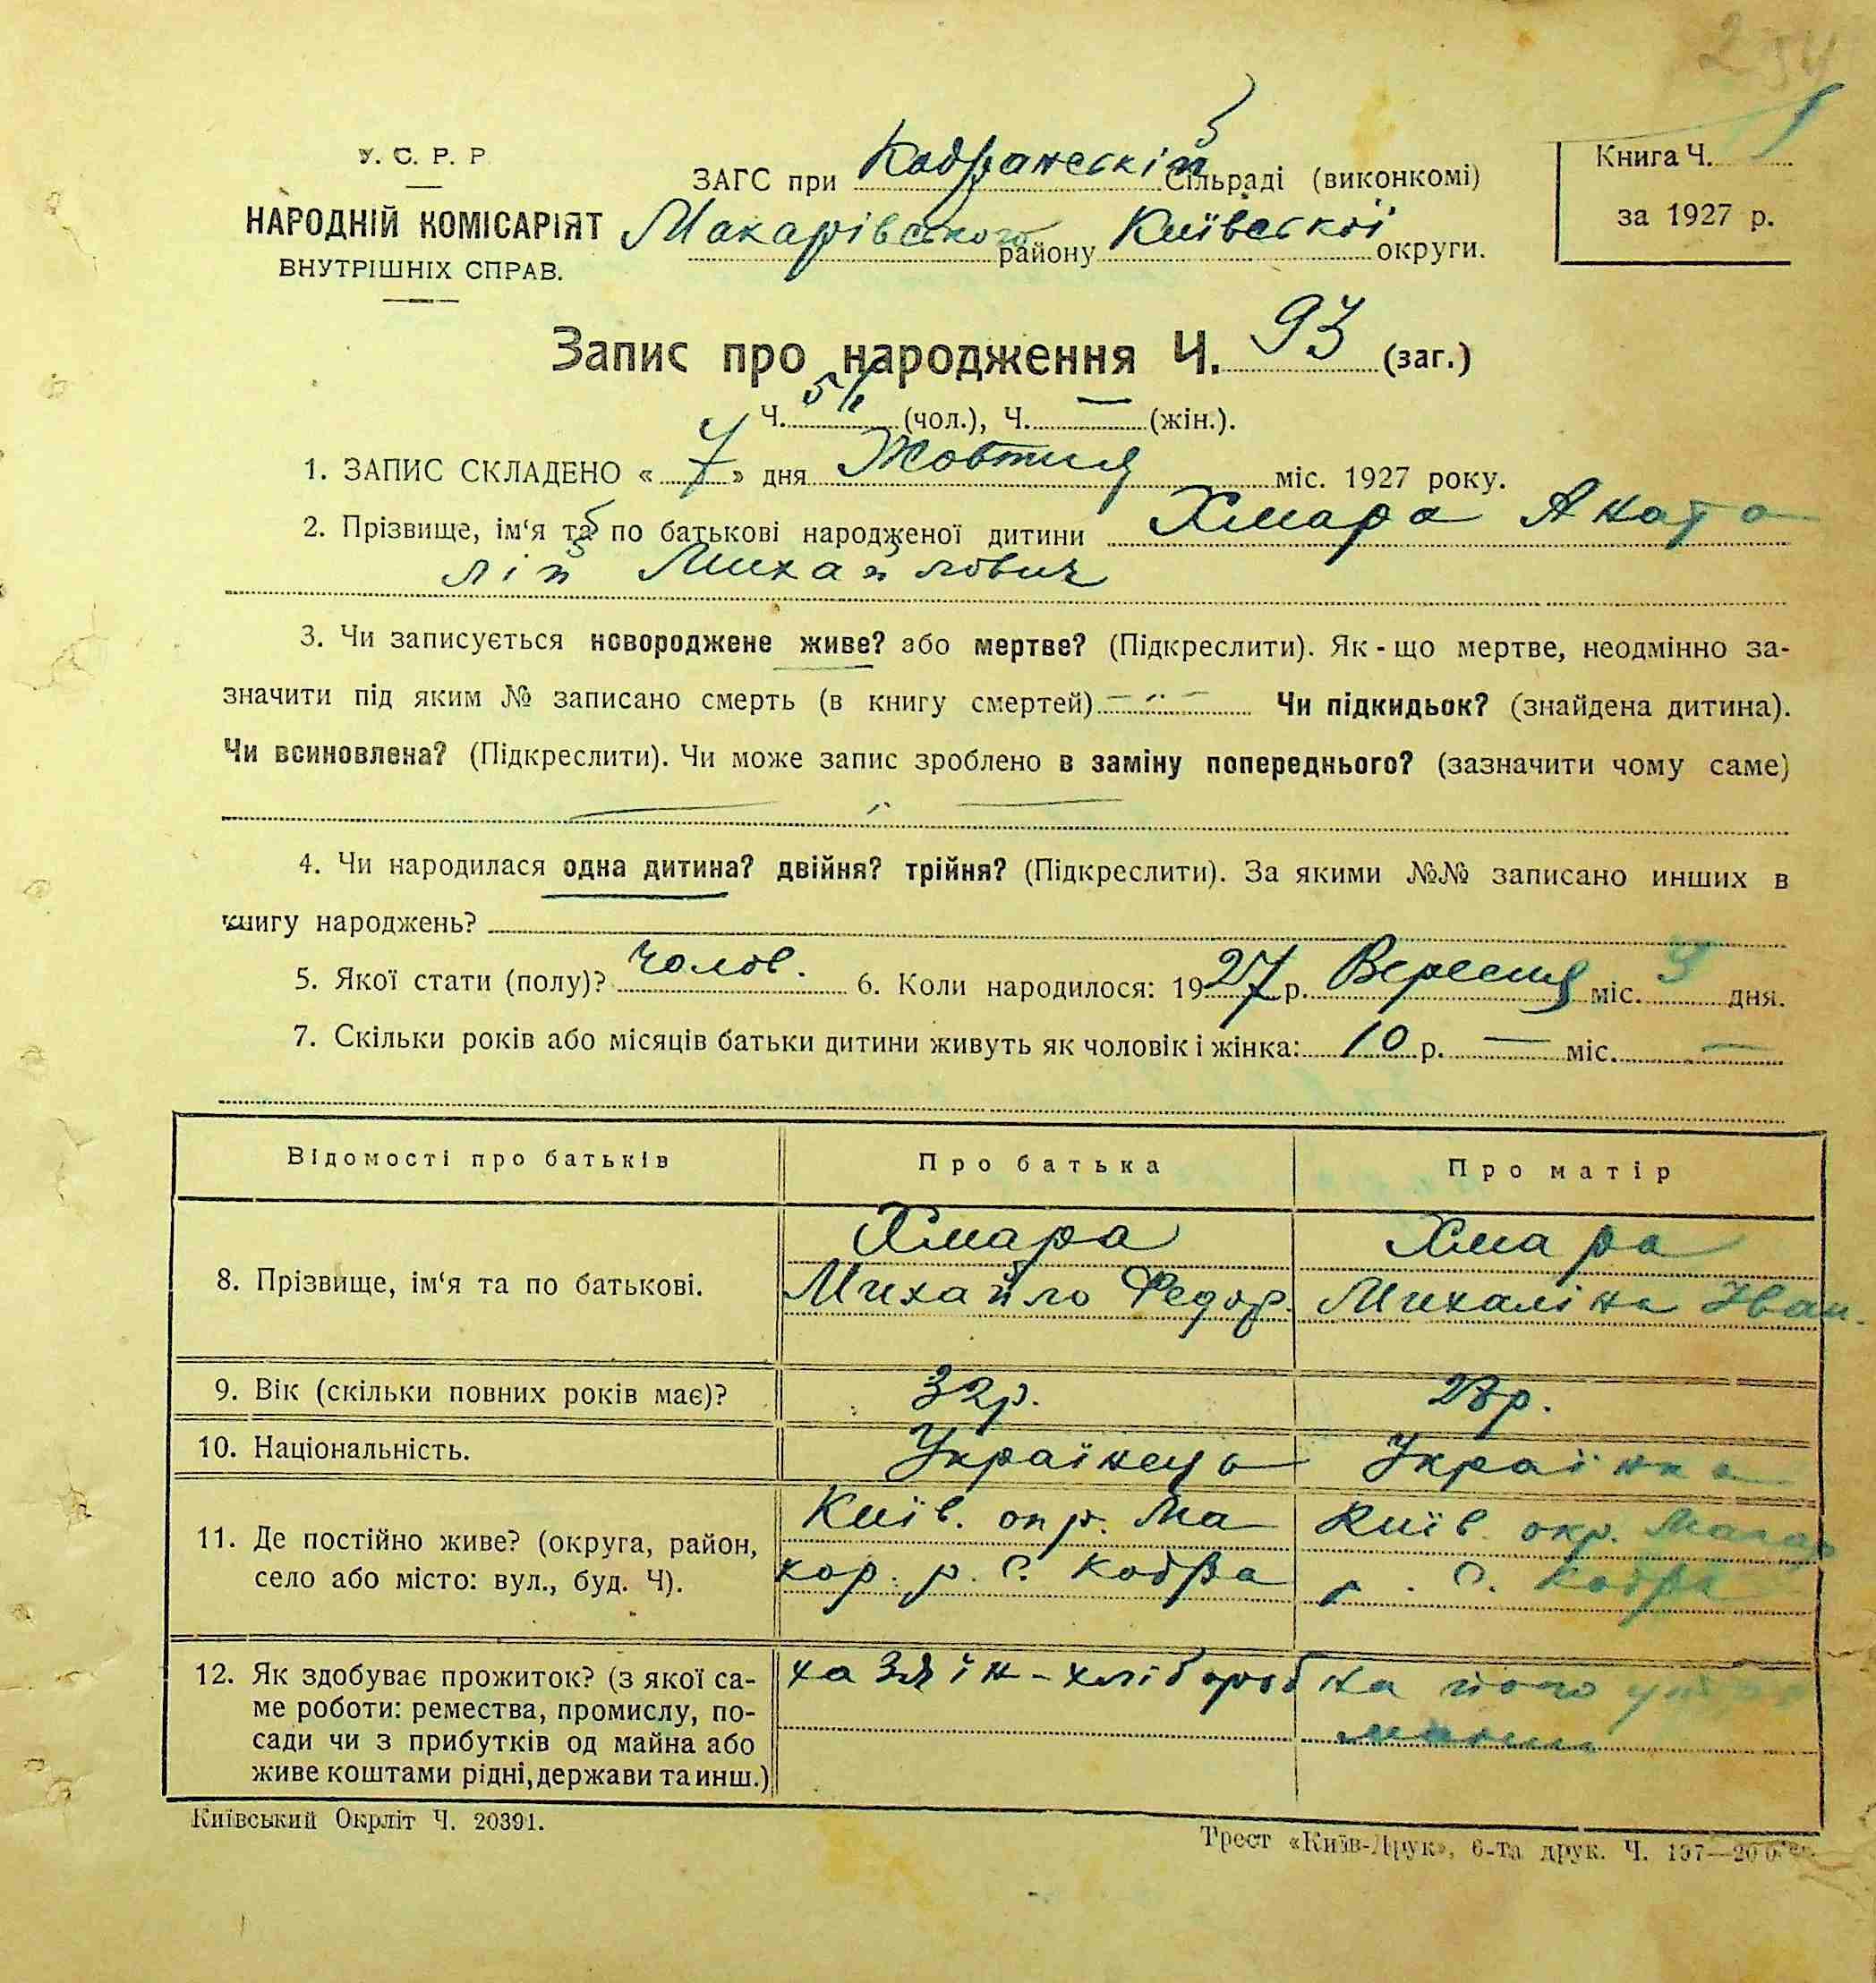 254
У. С. Р. Р.
НАРОДНІЙ КОМІСАРІЯТ
ВНУТРІШНІХ СПРАВ.
ЗАГС при Кодранській Сільраді (виконкомі)
Макарівського району Київської округи.
Книга Ч.
за 1927 р.
Запис про народження Ч. 93 (заг.)
Ч. 51 (чол.), Ч. — (жін.).
1. ЗАПИС СКЛАДЕНО « 7 » дня Жовтня міс. 1927 року.
2. Прізвище, ім‘я та по батькові народженої дитини Хмара Аната
лій Михайлович
3. Чи записується новороджене живе? або мертве? (Підкреслити). Як-що мертве, неодмінно за-
значити під яким № записано смерть (в книгу смертей) — „ — Чи підкидьок? (знайдена дитина).
Чи всиновлена? (Підкреслити). Чи може запис зроблено в заміну попереднього? (зазначити чому саме)
— „ —
4. Чи народилася одна дитина? двійня? трійня? (Підкреслити). За якими №№ записано инших в
книгу народжень?
5. Якої стати (полу)? чолов. 6. Коли народилося: 1927 р. Вересня міс. дня.
7. Скільки років або місяців батьки дитини живуть як чоловік і жінка: 10 р. — міс. —
Відомості про батьків
Про батька
Про матір
8. Прізвище, ім‘я та по батькові.
Хмара
Михайло Федор.
Хмара
Михаліна Іван.
9. Вік (скільки повних років має)?
32 р.
28 р.
10. Національність.
Українець
Українка
11. Де постійно живе? (округа, район,
село або місто: вул., буд. Ч).
Київ. окр. Ма
кар. р. с. Кодра
Київ. окр. Макар
р. с. Кодра
12. Як здобуває прожиток? (з якої са-
ме роботи: ремества, промислу, по-
сади чи з прибутків од майна або
живе коштами рідні, держави та инш.)
хазяїн-хлібороб
на його утри
манні
Київський Окрліт Ч. 20391.
Трест «Київ-Друк», 6-та друк. Ч. 197—